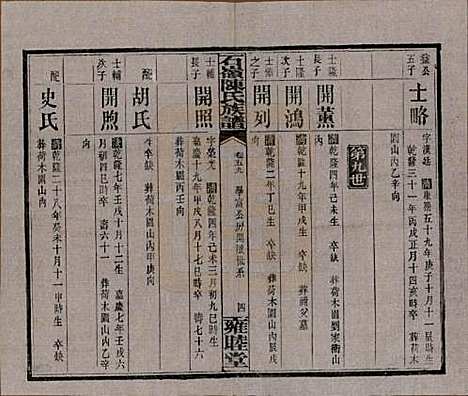 益公
五子
士略
字漢廷 康熙五十九年庚子十月十一
乾隆三十一年丙戌正月十四亥時卒 葬荷木
園山內乙辛向
第九世
士隆
長子
開薰
乾隆四年己未生 卒缺 葬荷木園山劉家衝山
士隆
次子
開鴻
乾隆十九年甲戌生 卒缺
士隆
之子
開列
乾隆二年丁巳生 卒缺 葬荷木園山內辰戌
向
石嶺陳氏族譜
卷五九
學富公房開
四
雍睦堂
士輔
長子
開照
字榮光 乾隆四年己未三月初九巳時生
嘉慶十九年甲戌八月十七巳時卒 葬荷木園山內
配
胡氏
乾隆 生 卒缺 葬荷木園山內甲庚向
士輔
次子
開煦
乾隆七年壬戌十月十二日生 嘉慶七年壬戌六
月初四巳時卒 壽六十一 葬荷木園山內乙辛
向
配
史氏
乾隆二十八年癸未十月十一甲時生 卒缺
葬荷木園山內